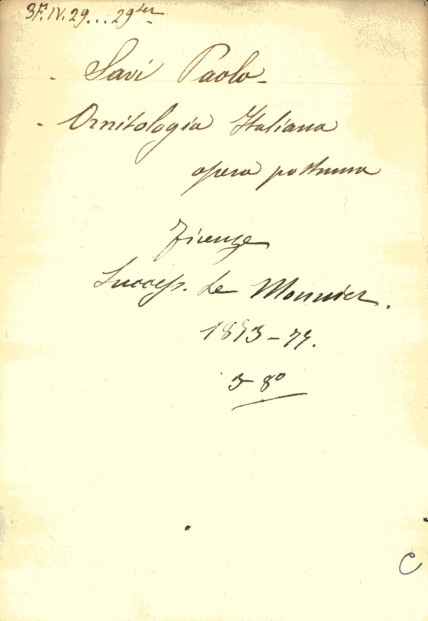 3F.IV.29...29ter
Savi Paolo-
- Ornitologia Italiana
opera postuma
Firenze
Success. Le Monnier.
1873-77.
3-8º
C